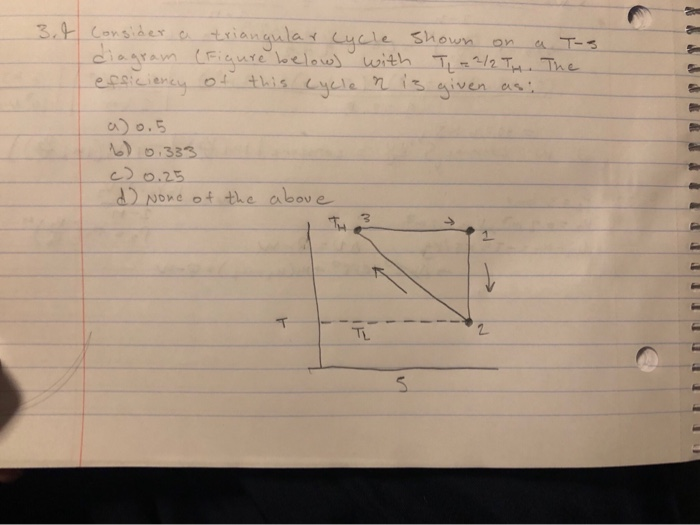 3.4 Consider a triangular cycle shown on a T-s
diagram (Figure below) with TL = 2/2 TH. The
efficiency of this cycle η is given as:
a) 0.5
b) 0.333
c) 0.25
d) None of the above
TH 3
1
T
TL
2
S